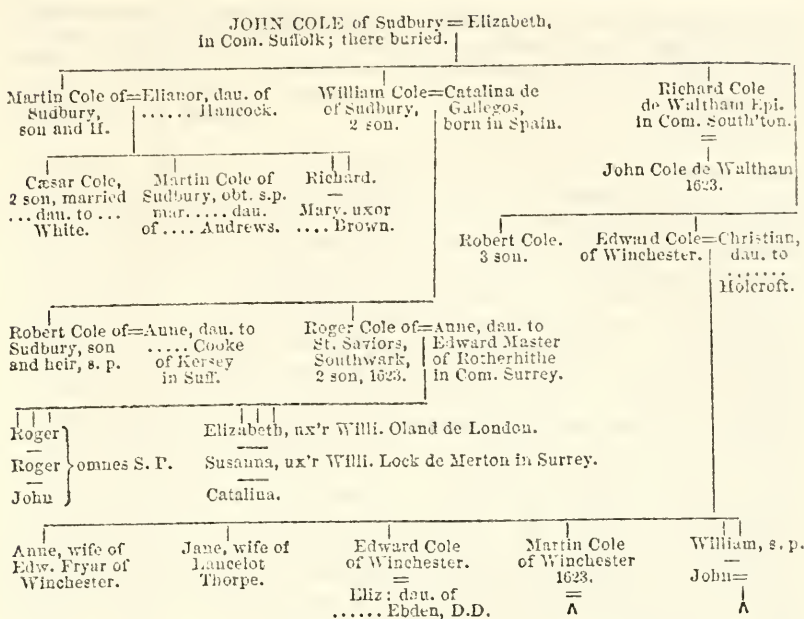 JOHN COLE of Sudbury = Elizabeth,
in Com. Suffolk; there buried.
Martin Cole of = Elianor, dau. of
Sudbury, ...... Hancock.
son and H.
William Cole = Catalina de
of Sudbury, Gallegos,
2 son. born in Spain.
Richard Cole
de Waltham Epi.
in Com. South'ton.
=
John Cole de Waltham
1623.
Cæsar Cole,
2 son, married
... dau. to ...
White.
Martin Cole of
Sudbury, obt. s.p.
mar. .... dau.
of .... Andrews.
Richard.
—
Mary. uxor
.... Brown.
Robert Cole.
3 son.
Edward Cole = Christian,
of Winchester. dau. to
.......
Holcroft.
Robert Cole of = Anne, dau. to
Sudbury, son ..... Cooke
and heir, s. p. of Kersey
in Suff.
Roger Cole of = Anne, dau. to
St. Saviors, Edward Master
Southwark, of Rotherhithe
2 son, 1623. in Com. Surrey.
Roger
—
Roger } omnes S. P.
—
John
Elizabeth, ux'r Willi. Oland de London.
Susanna, ux'r Willi. Lock de Merton in Surrey.
Catalina.
Anne, wife of
Edw. Fryar of
Winchester.
Jane, wife of
Lancelot
Thorpe.
Edward Cole
of Winchester.
=
Eliz: dau. of
...... Ebden, D.D.
Martin Cole
of Winchester
1623.
=
Λ
William, s. p.
—
John =
Λ